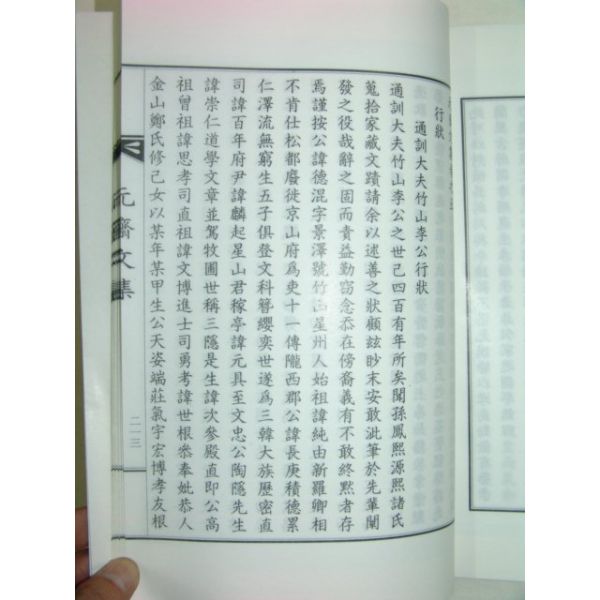 行狀
通訓大夫竹山李公行狀
通訓大夫竹山李公之世已四百有年所矣聞孫鳳熙源熙諸氏
蒐拾家藏文蹟請余以述善之狀顧玆眇末安敢泚筆於先輩闡
發之役哉辭之固而責益勤窃念忝在傍裔義有不敢終默者存
焉謹按公諱德混字景澤號竹山星州人始祖諱純由新羅卿相
不肯仕松都廢徙京山府爲吏十一傳隴西郡公諱長庚積德累
仁澤流無窮生五子俱登文科簪纓奕世遂爲三韓大族歷密直
司諱百年府尹諱麟起星山君稼亭諱元具至文忠公陶隱先生
諱崇仁道學文章並駕牧圃世稱三隱是生諱次參殿直即公高
祖曾祖諱思孝司直祖諱文博進士司勇考諱世根叅奉妣恭人
金山鄭氏修己女以某年某甲生公天姿端莊氣宇宏博孝友根
元齋文集
二一三